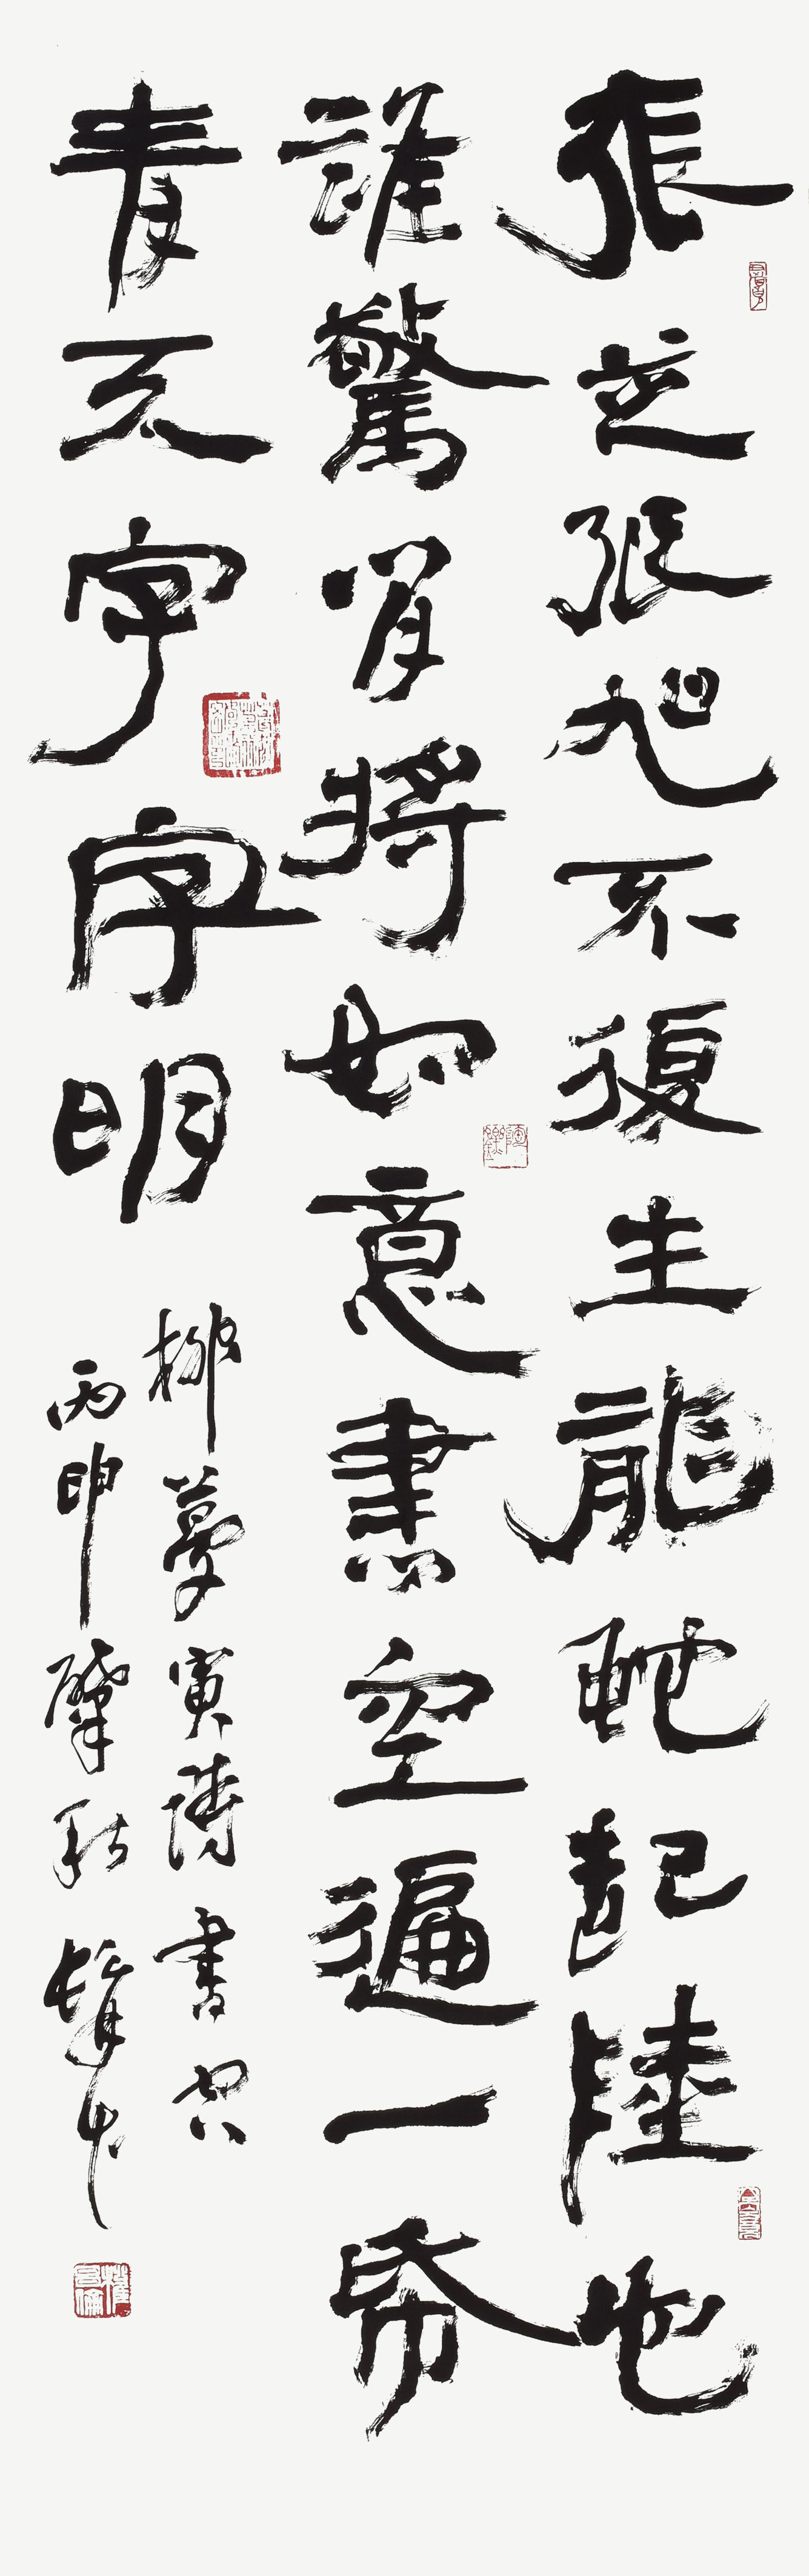 張芝張旭不復生龍蛇起陸也
誰驚閒將如意書空遍一帋
青天字字明
柳夢寅詩書空
丙申肇秋